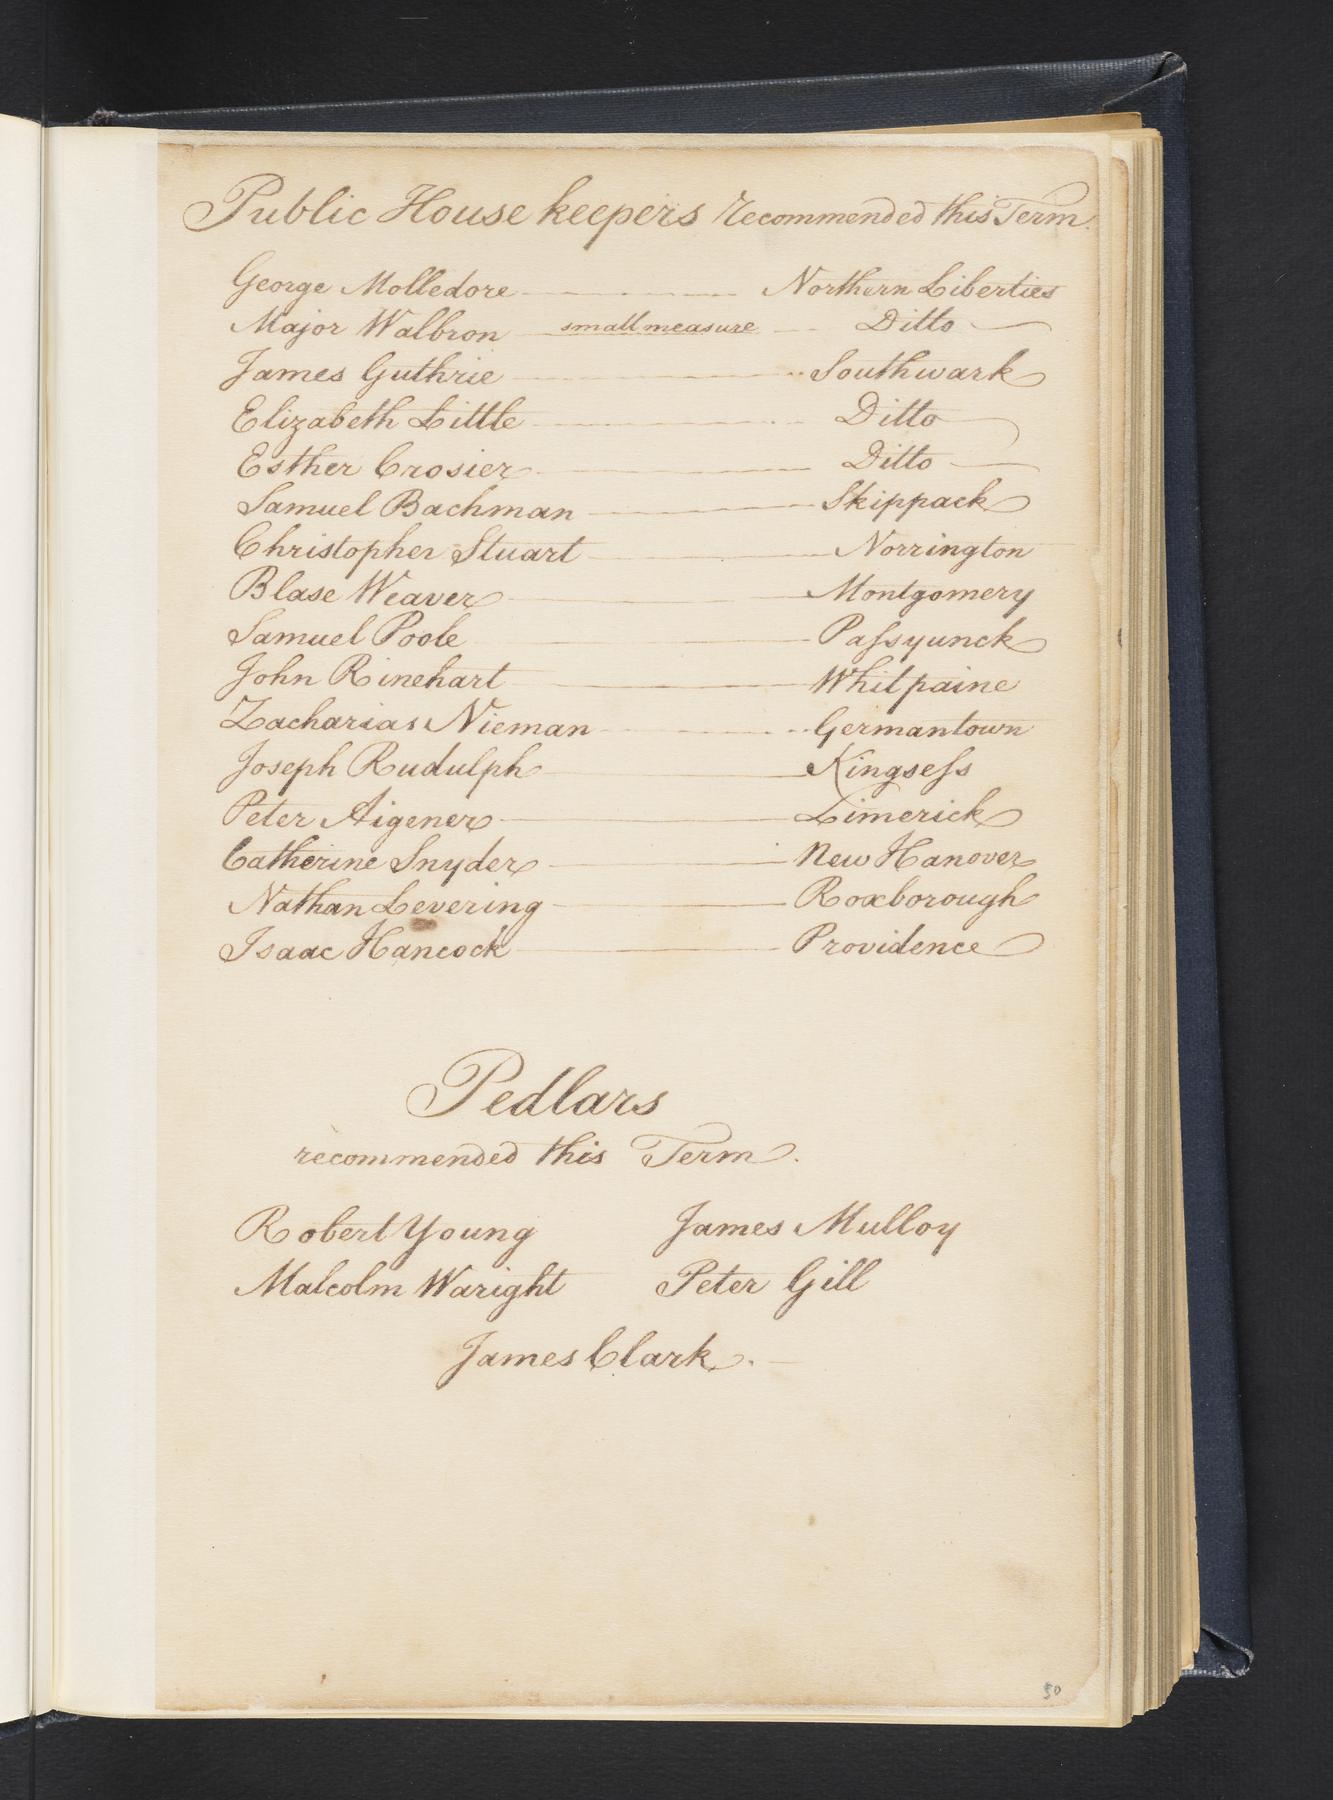 Public House keepers recommended this Term.
George Molledore Northern Liberties
Major Walbron small measure Ditto
James Guthrie Southwark
Elizabeth Little Ditto
Esther Crosier Ditto
Samuel Bachman Skippack
Christopher Stuart Norrington
Blase Weaver Montgomery
Samuel Poole Paſsyunck
John Rinehart Whitpaine
Zacharias Nieman Germantown
Joseph Rudulph Kingseſs
Peter Aigener Limerick
Catherine Snyder New Hanover
Nathan Levering Roxborough
Isaac Hancock Providence
Pedlars
recommended this Term.
Robert Young James Mulloy
Malcolm Waright Peter Gill
James Clark.
50